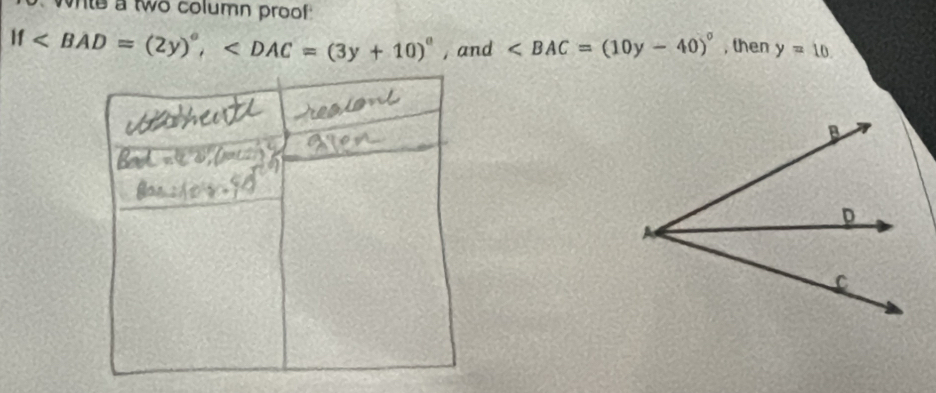 Write a two column proof:
If < BAD = (2y)°, < DAC = (3y + 10)°, and < BAC = (10y − 40)°, then y = 10.
reasons
given
B
D
A
C